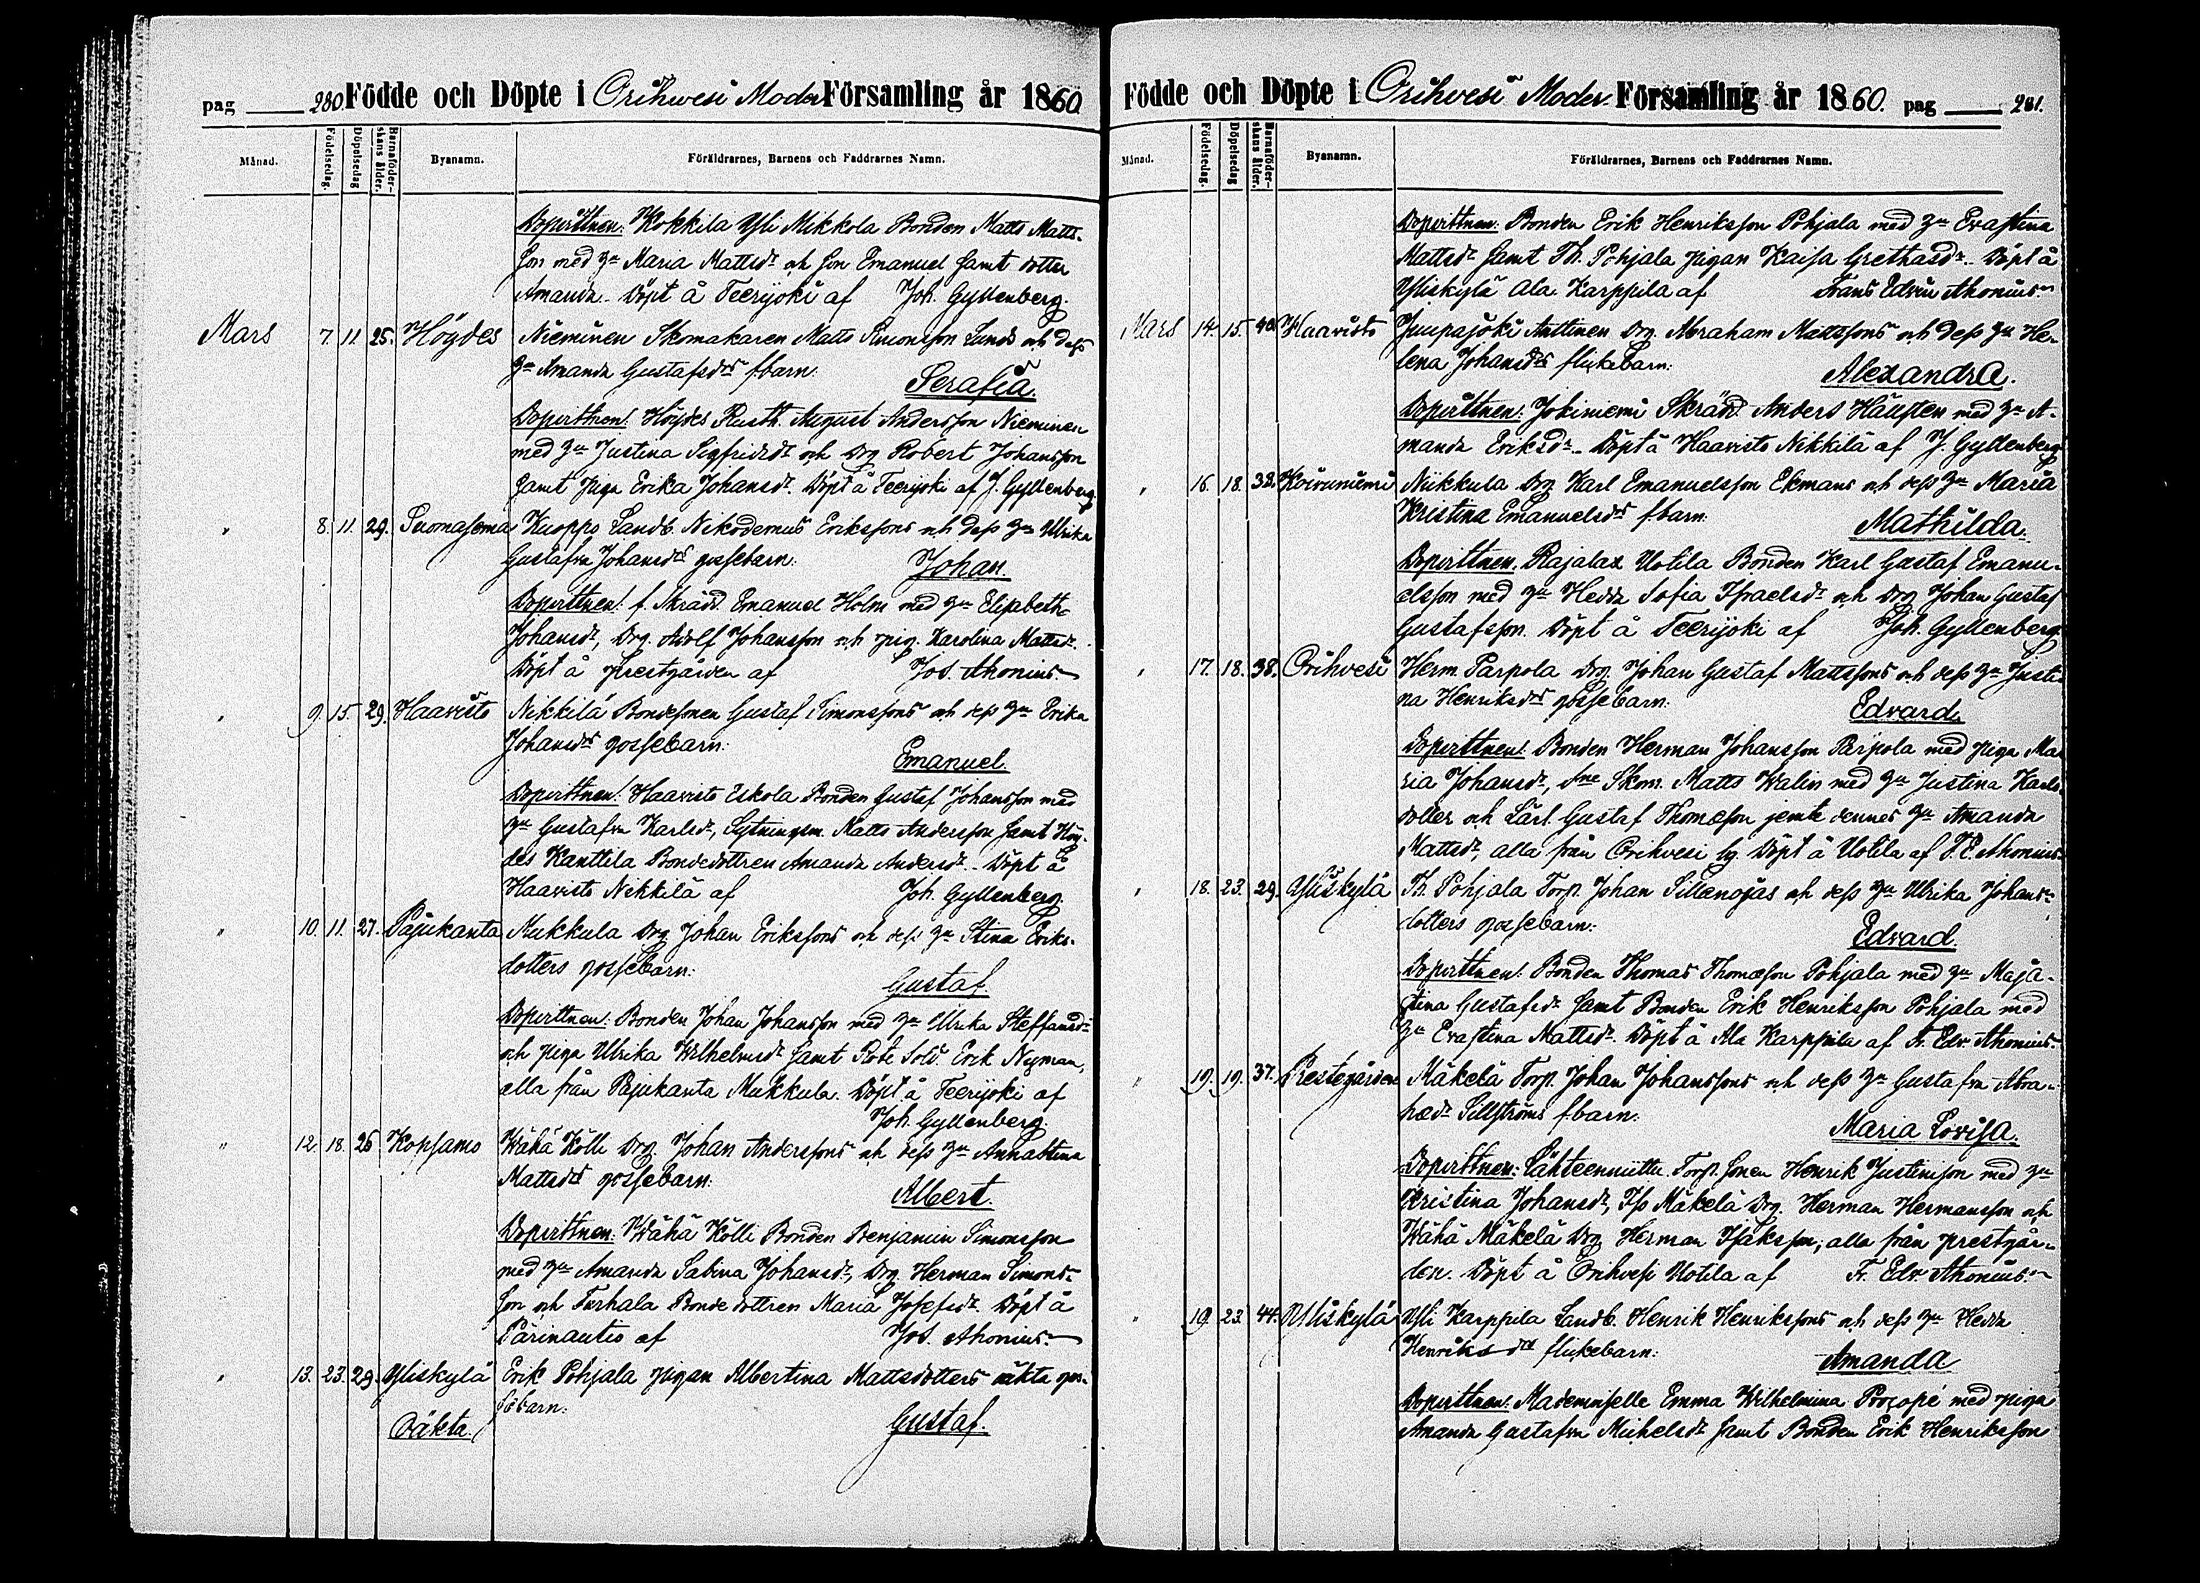 pag 280. Födde och Döpte i Orihwesi Moder Församling år 1860
Månad. Födelsedag. Döpelsedag Barnaföderskans ålder. Byanamn. Föräldrarnes, Barnens och Faddrarnes Namn.
Dopvittnen: Kokkila Yli Mikkola Bonden Matts Matts-
son med Hu Maria Mattsdr och son Emanuel samt dotter
Amanda. Döpt å Teerijoki af Joh. Gyllenberg.
Mars 7. 11. 25. Höydes Nieminen Skomakaren Matts Simonsson Lunds och dess
Hu Amanda Gustafsdrs f.barn: Serafia.
Dopvittnen: Höydes Rusth. August Andersson Nieminen
med Hu Justina Sigfridsdr och Drg Robert Johansson
samt piga Erika Johansdr. Döpt å Teerijoki af J. Gyllenberg.
" 8. 11. 29. Suomasema Kuoppo Landb. Nikodemus Erikssons och dess Hu Ulrika
Gustafva Johansdrs gossebarn: Johan.
Dopvittnen: f. Skrädd. Emanuel Holm med Hu Elisabeth
Johansdr, Drg. Adolf Johansson och pig. Karolina Mattsdr.
Döpt å prestgården af Jos. Ahonius
" 9. 15. 29. Haavisto Nikkilä Bondesonen Gustaf Simonssons och dess Hu Erika
Johansdrs gossebarn: Emanuel.
Dopvittnen: Haavisto Eskola Bonden Gustaf Johansson med
Hu Gustafva Karlsdr, Sytningsm. Matts Andersson samt Höy-
des Kanttila Bondedottren Amanda Andersdr. Döpt å
Haavisto Nikkilä af Joh. Gyllenberg.
" 10. 11. 27. Pajukanta Mukkula Drg. Johan Erikssons och dess Hu Stina Eriks-
dotters gossebarn: Gustaf.
Dopvittnen: Bonden Johan Johansson med Hu Ulrika Steffansdr
och piga Ulrika Wilhelmsdr samt Rote Sold. Erik Nyman,
alla från Pajukanta Mukkula. Döpt å Teerijoki af
Joh. Gyllenberg.
" 12. 18. 26 Kopsamo Wähä Kölli Drg. Johan Anderssons och dess Hu Annastina
Mattsdrs gossebarn: Albert.
Dopvittnen: Wähä Kölli Bonden Benjamin Simonsson
med Hu Amanda Sabina Johansdr, Drg. Herman Simons-
son och Turhala Bondedottren Maria Josefsdr. Döpt å
Pärinautio af Jos. Ahonius.
" 13. 23. 29. Yliskylä Erik Pohjala pigan Albertina Mattsdotters oäkta gos-
sebarn: Gustaf.
Oäkta.
Födde och Döpte i Orihvesi Moder Församling år 1860. pag 281.
Månad. Födelsedag. Döpelsedag Barnaföderskans ålder. Byanamn. Föräldrarnes, Barnens och Faddrarnes Namn.
Dopvittnen: Bonden Erik Henriksson Pohjala med Hu Evastina
Mattsdr samt Th. Pohjala pigan Kaisa Grethasdr. Döpt å
Yliskylä Ala Karppila af Frans Edvin Ahonius.
Mars 14. 15. 40. Haavisto Juupajoki Anttinen Drg. Abraham Mattssons och dess Hu He-
lena Johansdrs flickebarn: Alexandra.
Dopvittnen: Jokiniemi Skrädd. Anders Häusten med Hu A-
manda Eriksdr. Döpt å Haavisto Nikkilä af J. Gyllenberg
" 16. 18. 32. Koivuniemi Niikkula Drg Karl Emanuelsson Ekmans och dess Hu Maria
Kristina Emanuelsdrs f.barn: Mathilda.
Dopvittnen. Rajalax Uotila Bonden Karl Gustaf Emanu-
elsson med Hu Hedda Sofia Israelsdr och Drg Johan Gustaf
Gustafsson. Döpt å Teerijoki af Joh. Gyllenberg
" 17. 18. 38. Orihvesi Herm. Parpola Drg. Johan Gustaf Mattssons och dess Hu Justi-
na Henriksdrs gossebarn: Edvard.
Dopvittnen: Bonden Herman Johansson Parpola med piga Ma-
ria Johansdr, Skom. Matts Walin med Hu Justina Karls-
dotter och Lärl. Gustaf Thomasson jemte dennes Hu Amanda
Mattsdr, alla från Orihvesi by. Döpt å Uotila af F. E. Ahonius.
" 18. 23. 29. Yliskylä Th. Pohjala Torp. Johan Sillanojas och dess Hu Ulrika Johans-
dotters gossebarn: Edvard.
Dopvittnen: Bonden Thomas Thomasson Pohjala med Hu Maja-
stina Gustafsdr samt Bonden Erik Henriksson Pohjala med
Hu Evastina Mattsdr. Döpt å Ala Karppila af Fr. Edv. Ahonius.
" 19. 19. 37. Prestegården Mäkelä Torp. Johan Johanssons och dess Hu Gustafva Abra-
hadr Sillströms f.barn: Maria Lovisa.
Dopvittnen: Lähteenniittu Torp. sonen Henrik Justinsson med Hu
Kristina Johansdr, Iso Mäkelä Drg. Herman Hermansson och
Wähä Mäkelä Drg Herman Isaksson, alla från prestgår-
den. Döpt å Orihvesi Uotila af Fr. Edv Ahonius.
" 19. 23. 44. Yliskylä Yli Karppila Landb. Henrik Henrikssons och dess Hu Hedda
Henriksdrs flickebarn: Amanda
Dopvittnen: Mademoiselle Emma Wilhelmina Procopé med piga
Amanda Gustafva Michelsdr samt Bonden Erik Henriksson